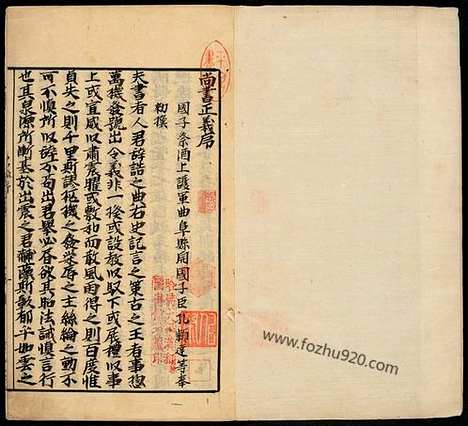 尚書正義序
國子祭酒上護軍曲阜縣開國子臣孔穎達等奉
勑撰
夫書者人君辭誥之典右史記言之策古之王者事惣
萬機發號出令義非一揆或設教以馭下或展禮以事
上或宣威以肅震曜或敷和而散風雨得之則百度惟
貞失之則千里斯謬樞機之發榮辱之主絲綸之動不
可不慎所以辭不苟出君舉必書欲其昭法誡慎言行
也其泉源所漸基於出震之君黼藻斯彰郁乎如雲之
www.fozhu920.com